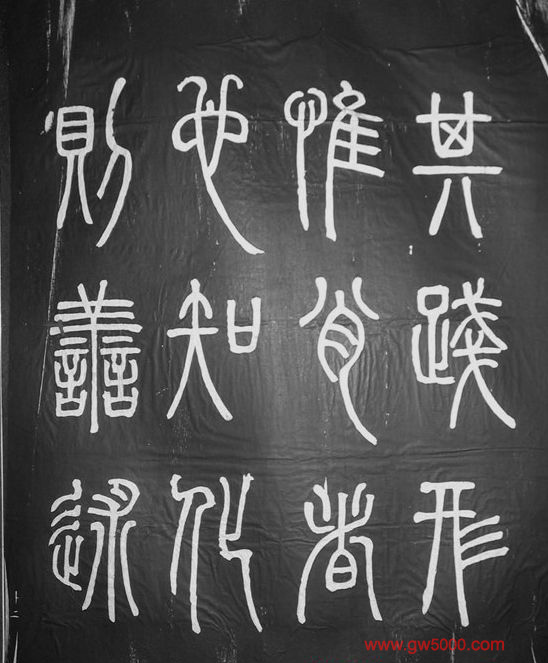 其踐形
惟肖者
也知化
則善述
www.gw5000.com